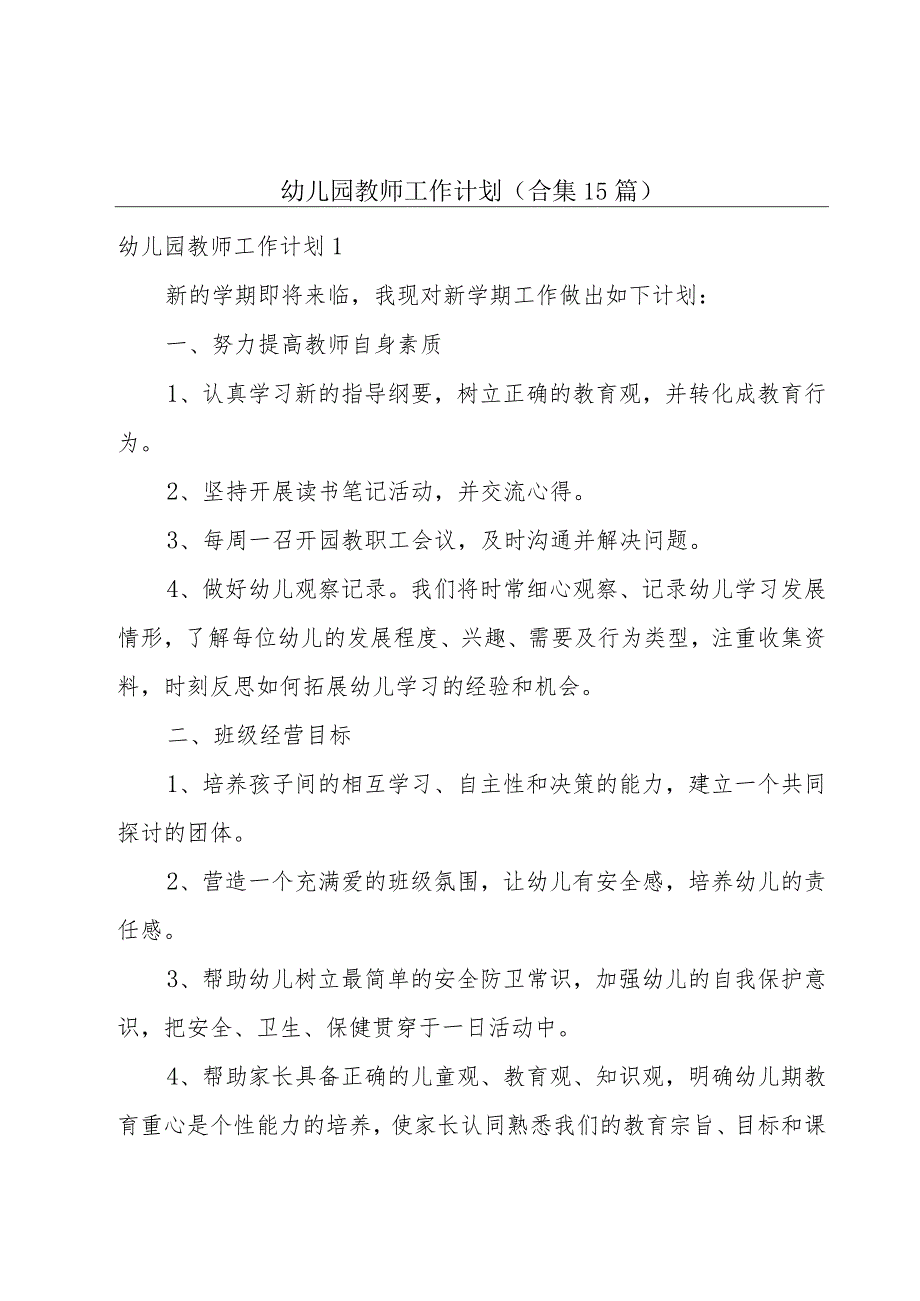 幼儿园教师工作计划（合集 15 篇）
幼儿园教师工作计划 1
新的学期即将来临，我现对新学期工作做出如下计划：
一、努力提高教师自身素质
1、认真学习新的指导纲要，树立正确的教育观，并转化成教育行
为。
2、坚持开展读书笔记活动，并交流心得。
3、每周一召开园教职工会议，及时沟通并解决问题。
4、做好幼儿观察记录。我们将时常细心观察、记录幼儿学习发展
情形，了解每位幼儿的发展程度、兴趣、需要及行为类型，注重收集资
料，时刻反思如何拓展幼儿学习的经验和机会。
二、班级经营目标
1、培养孩子间的相互学习、自主性和决策的能力，建立一个共同
探讨的团体。
2、营造一个充满爱的班级氛围，让幼儿有安全感，培养幼儿的责
任感。
3、帮助幼儿树立最简单的安全防卫常识，加强幼儿的自我保护意
识，把安全、卫生、保健贯穿于一日活动中。
4、帮助家长具备正确的儿童观、教育观、知识观，明确幼儿期教
育重心是个性能力的培养，使家长认同熟悉我们的教育宗旨、目标和课